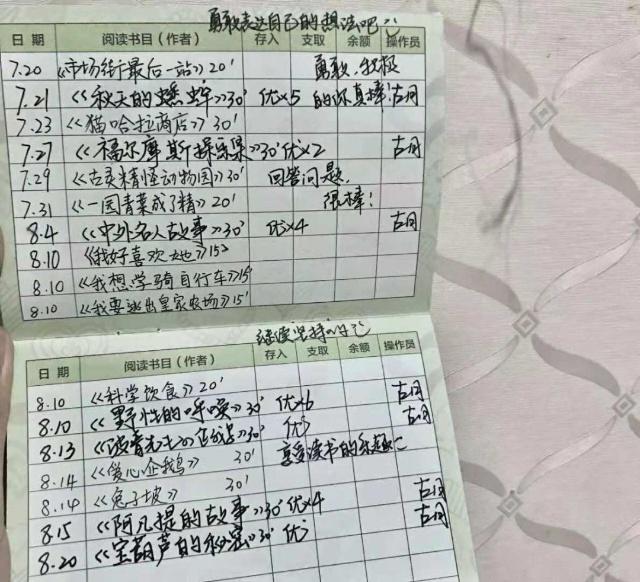 勇敢表达自己的想法吧
日期 阅读书目(作者) 存入 支取 余额 操作员
7.20 《市场街最后一站》20' 勇敢,积极
7.21 《秋天的蟋蟀》30' 优×5 的你真棒!
7.23 《猫哈拉商店》30'
7.27 《福尔摩斯探案集》30' 优×2
7.29 《古灵精怪动物园》30' 回答问题,
7.31 《一园青菜成了精》20' 很棒!
8.4 《中外名人故事》30' 优×4
8.10 《我好喜欢她》15'
8.10 《我想学骑自行车》15'
8.10 《我要逃出皇家农场》15'
继续坚持
日期 阅读书目(作者) 存入 支取 余额 操作员
8.10 《科学饮食》20'
8.10 《野性的呼唤》30' 优×6
8.13 30'
8.14 《爱心企鹅》 30' 享受读书的乐趣
8.14 《兔子坡》 30'
8.15 《阿凡提的故事》30' 优×4
8.20 《宝葫芦的秘密》30' 优